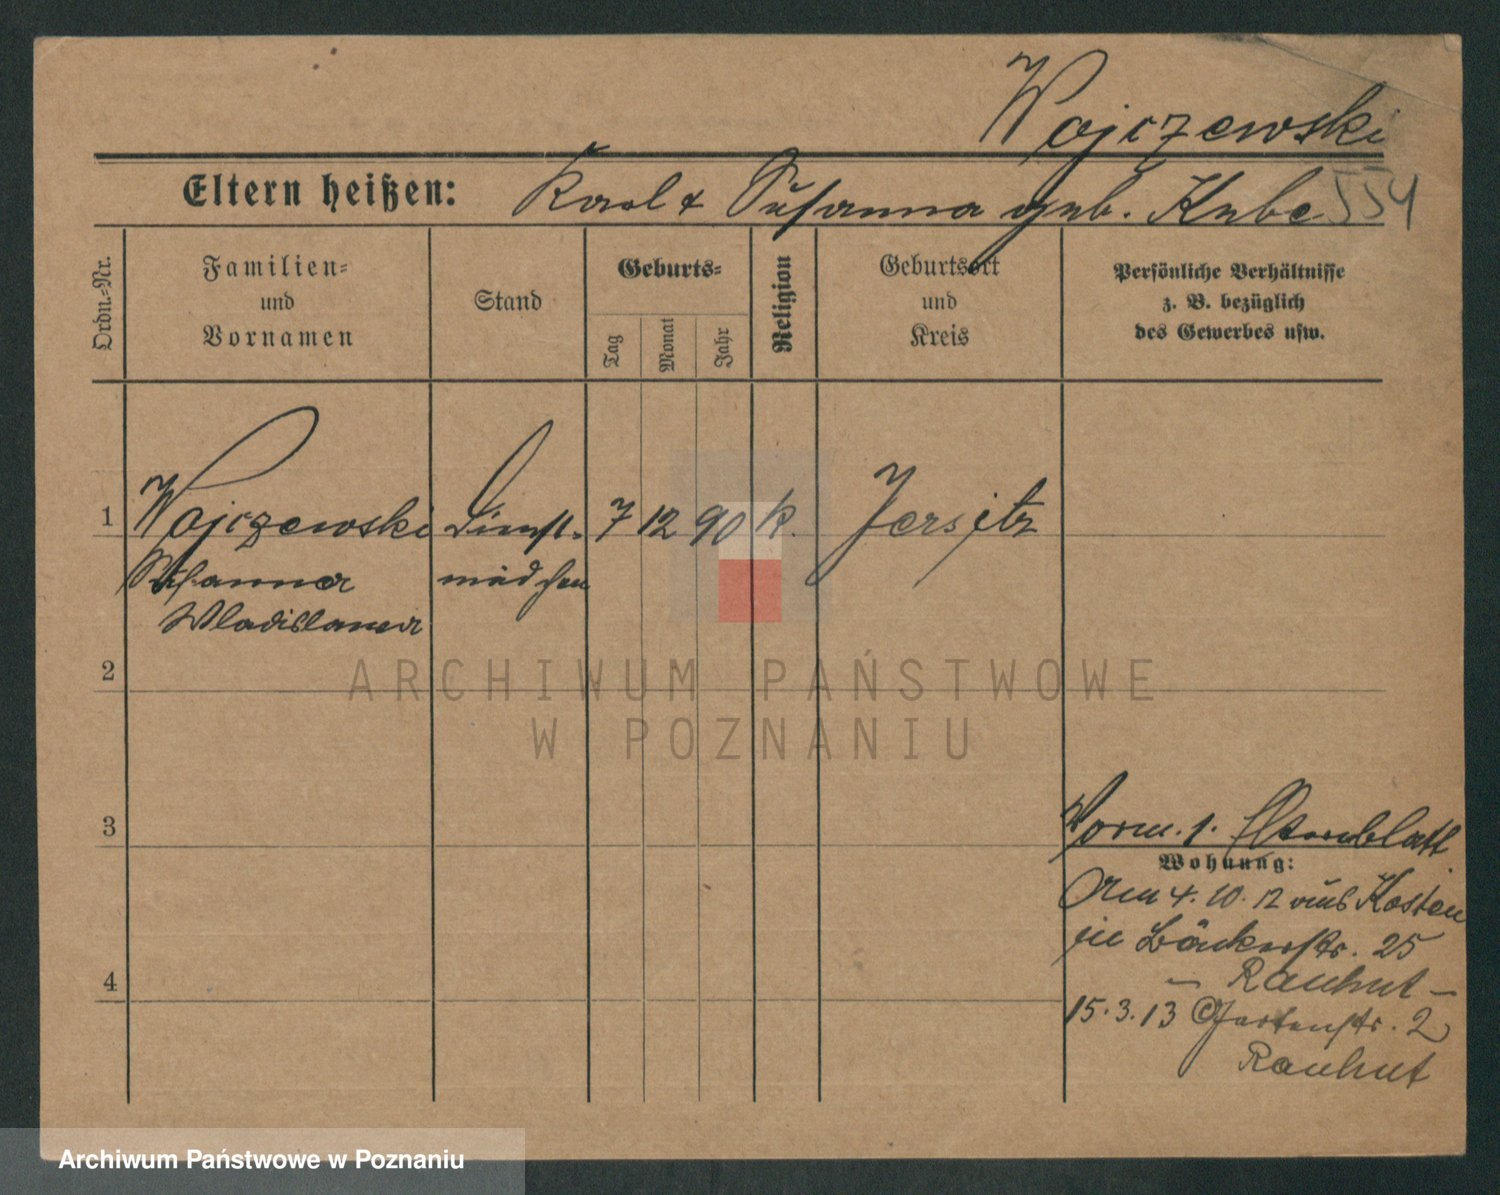 Wojczewski
Eltern heißen: Karl & Susanna geb. Kube 554
Ordn.-Nr.
Familien-
und
Vornamen
Stand
Geburts-
Tag
Monat
Jahr
Religion
Geburtsort
und
Kreis
Persönliche Verhältnisse
z. B. bezüglich
des Gewerbes usw.
1 Wojczewski Dienst- 7 12 90 k. Jersitz
Susanna mädchen
Wladislawa
2
3
4
Vorm. s. Elternblatt
Wohnung:
Am 4. 10. 12 aus Kosten
in Bäckerstr. 25
– Rauhut –
15. 3. 13 Gartenstr. 2
Rauhut
ARCHIWUM PAŃSTWOWE
W POZNANIU
Archiwum Państwowe w Poznaniu